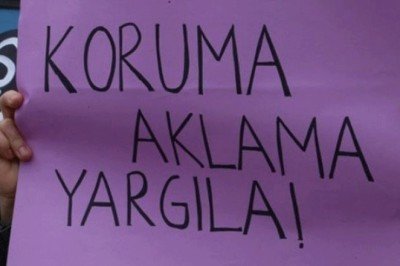 KORUMA
AKLAMA
YARGILA!